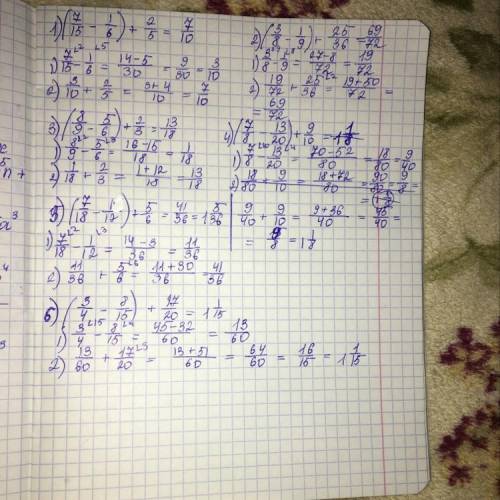 1) (7/15 - 1/6) + 2/5 = 7/10
1) 7/15 - 1/6 = 14-5/30 = 9/30 = 3/10
2) 3/10 + 2/5 = 3+4/10 = 7/10
2) (3/8 - 1/9) + 25/36 = 69/72
1) 3/8 - 1/9 = 27-8/72 = 19/72
2) 19/72 + 25/36 = 19+50/72 =
= 69/72
3) (8/9 - 5/6) + 2/3 = 13/18
1) 8/9 - 5/6 = 16-15/18 = 1/18
2) 1/18 + 2/3 = 1+12/18 = 13/18
4) (7/8 - 13/20) + 9/10 = 1 1/8
1) 7/8 - 13/20 = 70-52/80 = 18/80 = 9/40
2) 18/80 + 9/10 = 18+72/80 = 90/80 = 9/8
9/40 + 9/10 = 9+36/40 = 45/40 =
= 9/8 = 1 1/8
5) (7/18 - 1/12) + 5/6 = 41/36 = 1 5/36
1) 7/18 - 1/12 = 14-3/36 = 11/36
2) 11/36 + 5/6 = 11+30/36 = 41/36
6) (3/4 - 8/15) + 17/20 = 1 1/15
1) 3/4 - 8/15 = 45-32/60 = 13/60
2) 13/60 + 17/20 = 13+51/60 = 64/60 = 16/15 = 1 1/15